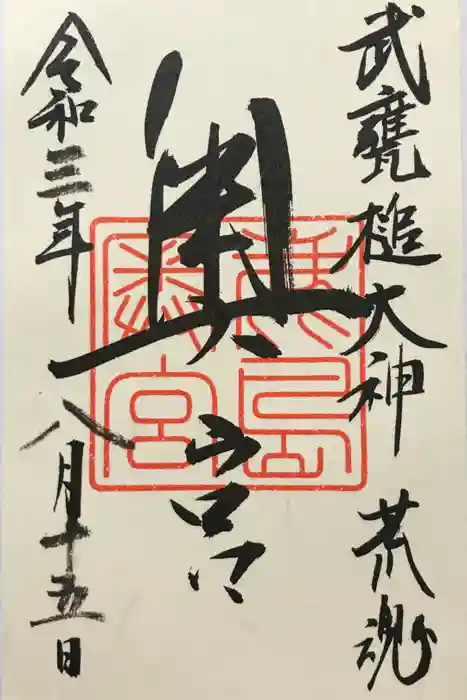 武甕槌大神 荒魂
奥宮
鹿島奥宮
令和三年八月十五日